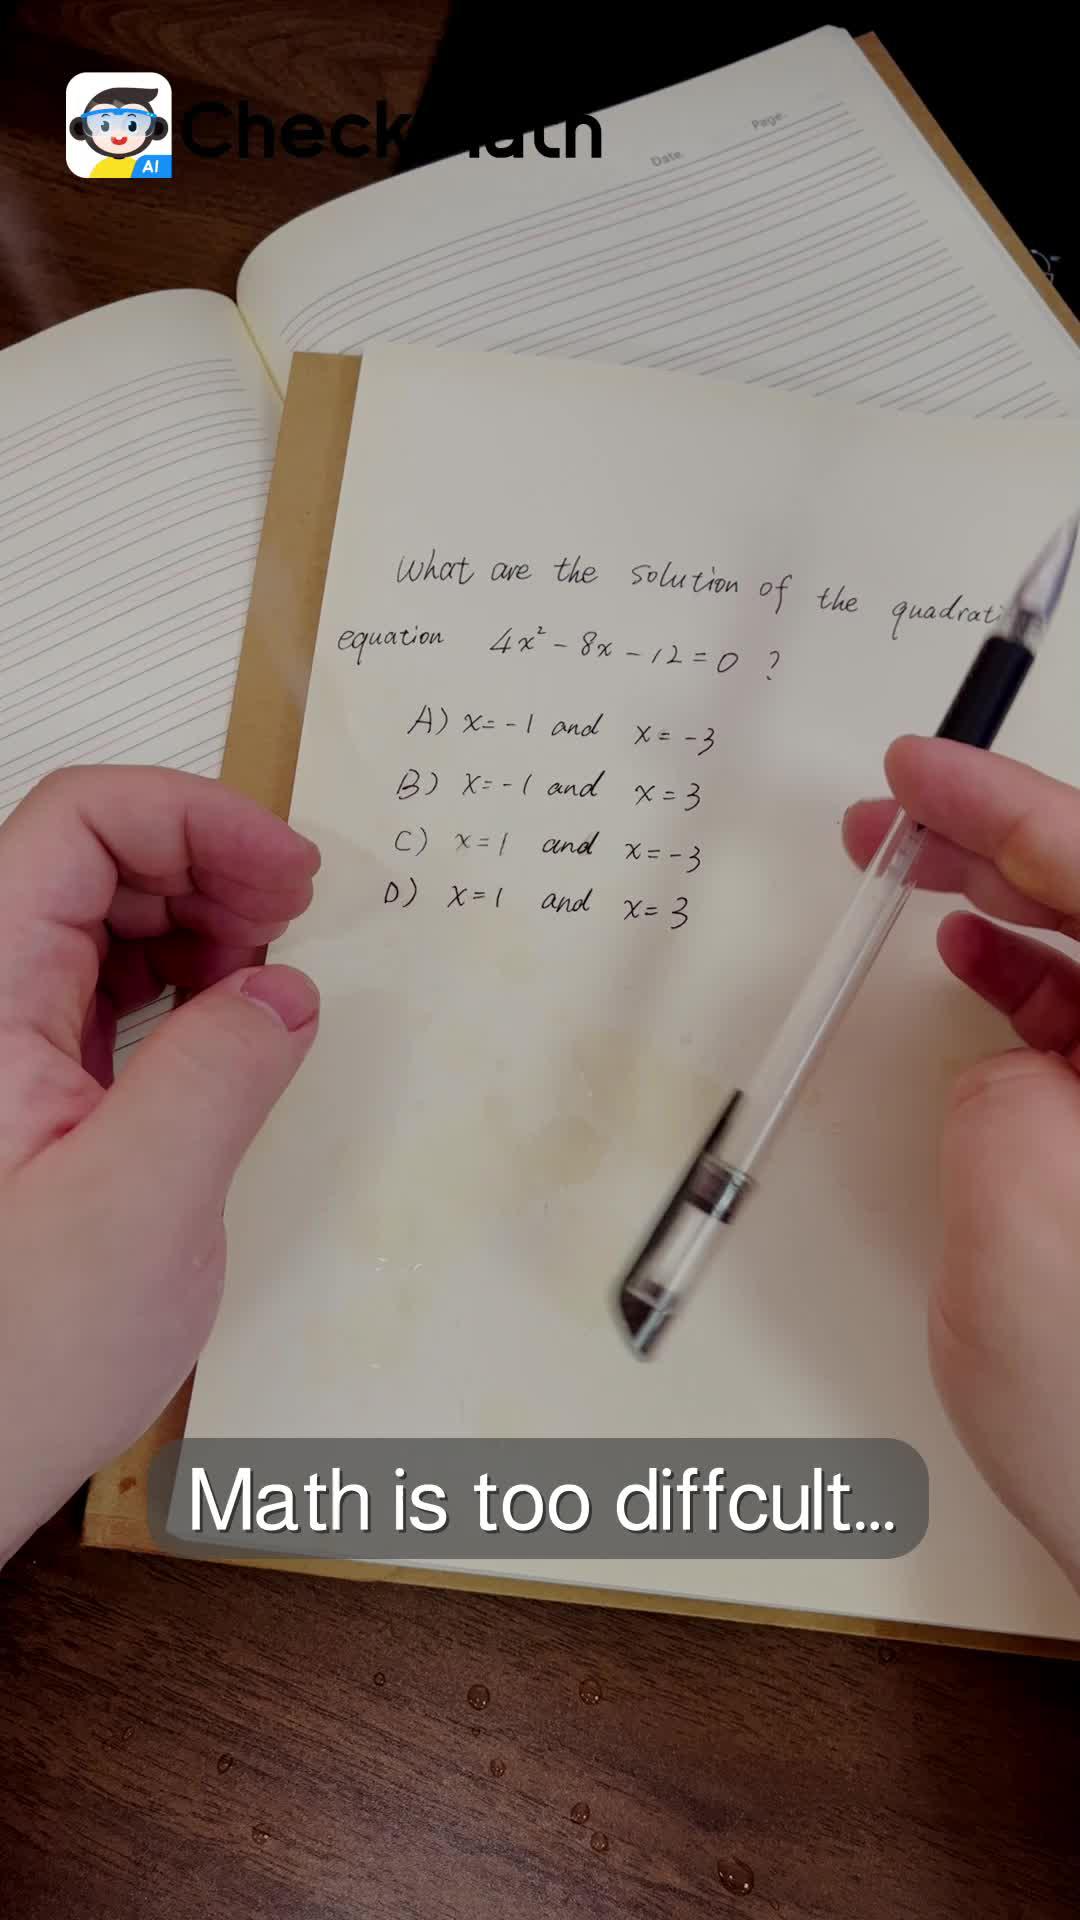 AI
Page.
Date.
What are the solution of the
equation 4x² - 8x - 12 = 0 ?
A) x = -1 and x = -3
B) x = -1 and x = 3
C) x = 1 and x = -3
D) x = 1 and x = 3
Math is too diffcult...